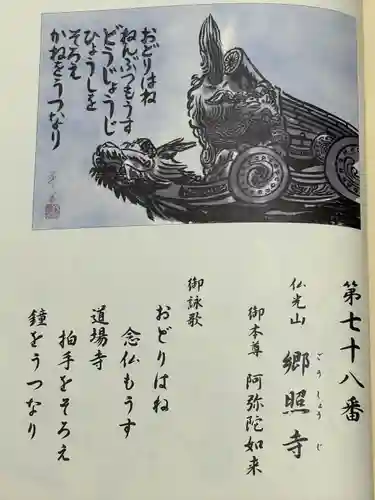 おどりはね
ねんぶつもうす
どうじょうじ
ひょうしを
そろえ
かねをうつなり
第七十八番
仏光山 郷照寺
ごうしょうじ
御本尊 阿弥陀如来
御詠歌
おどりはね
念仏もうす
道場寺
拍手をそろえ
鐘をうつなり